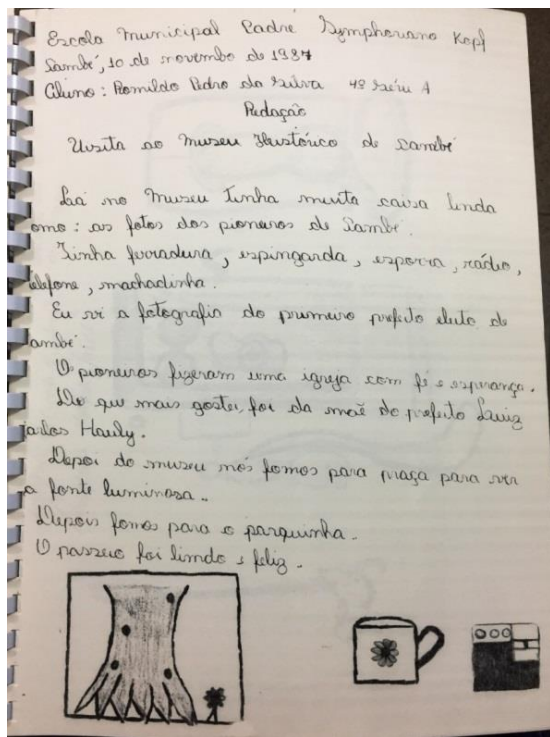 Escola Municipal Padre Symphoriano Kopf
Cambé, 10 de novembro de 1987
Aluno: Romildo Pedro da Silva 4ª Série A
Redação
Visita ao Museu Histórico de Cambé
Lá no Museu tinha muita coisa linda
omo: as fotos dos pioneiros de Cambé.
Tinha ferradura, espingarda, espora, rádio,
elefone, machadinha.
Eu vi a fotografia do primeiro prefeito eleito de
ambé.
O pioneiros fizeram uma igreja com fé e esperança.
Do que mais gostei, foi da mãe do prefeito Luiz
arlos Hauly.
Depoi do museu nós fomos para praça para ver
a fonte luminosa..
Depois fomos para o parquinha.
O passeio foi lindo e feliz.